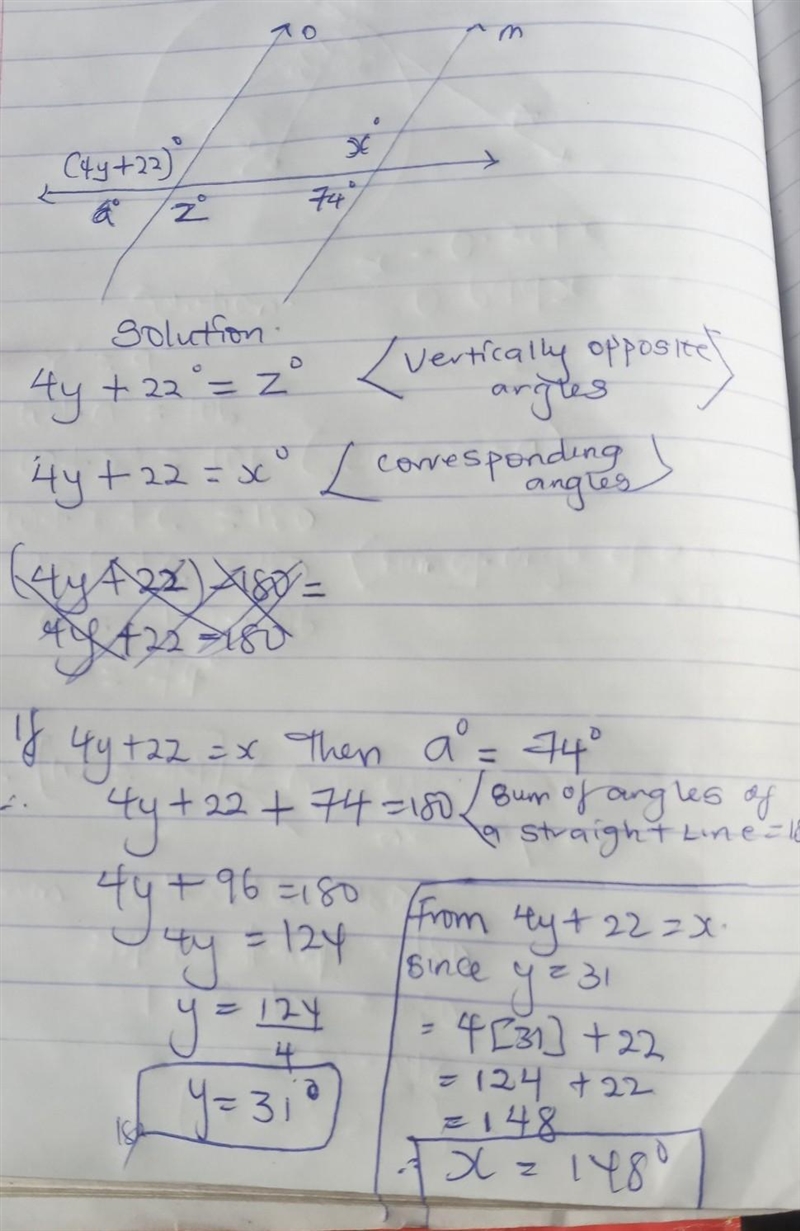 o m
(4y+22)° x°
a° z° 74°
Solution.
4y + 22° = z° < Vertically opposite
angles >
4y + 22 = x° [ corresponding
angles >
(4y+22) - 180 =
4y + 22 = 180
If 4y+22 = x Then a° = 74°
∴ 4y + 22 + 74 = 180 < sum of angles of
a straight Line = 18
4y + 96 = 180
4y = 124
y = 124
4
y = 31°
From 4y + 22 = x.
since y = 31
= 4[31] + 22
= 124 + 22
= 148
∴ x = 148°